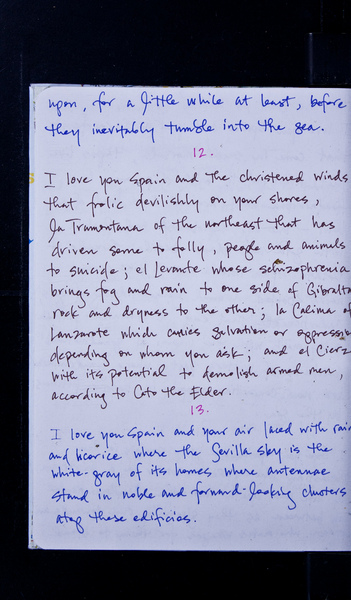 upon, for a little while at least, before
they inevitably tumble into the sea.
12.
I love you Spain and the christened winds
that frolic devilishly on your shores,
la Tramontana of the northeast that has
driven some to folly, people and animals
to suicide; el Levante whose schizophrenia
brings fog and rain to one side of Gibralta
rock and dryness to the other; la Calima of
Lanzarote which carries salvation or oppressio
depending on whom you ask; and el Cierz
with its potential to demolish armed men,
according to Cato the Elder.
13.
I love you Spain and your air laced with rain
and licorice where the Sevilla sky is the
white-gray of its homes where antennae
stand in noble and forward-looking clusters
atop these edificios.